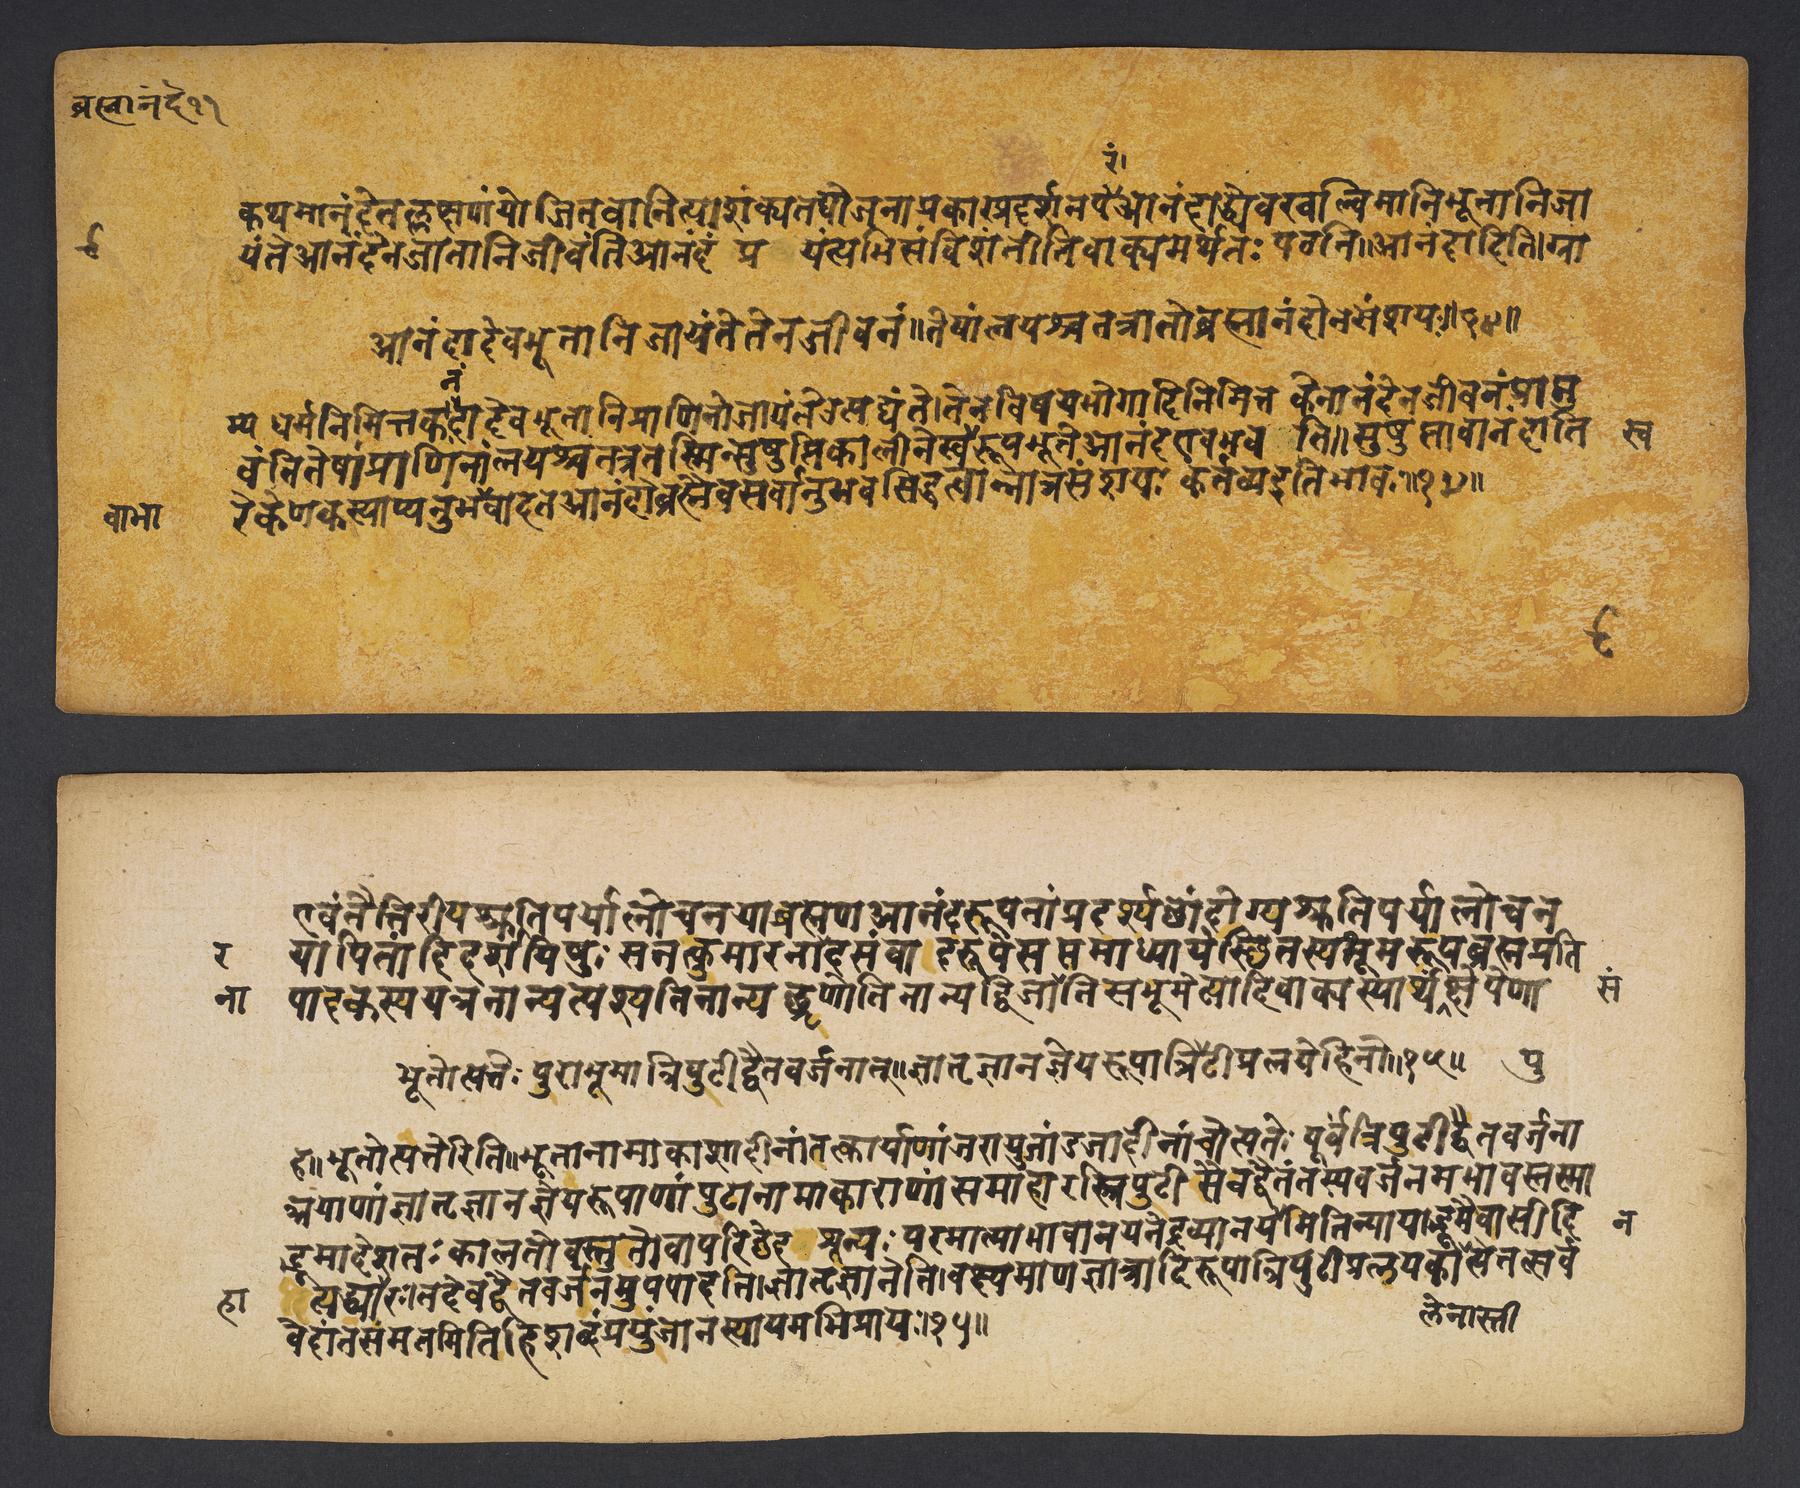 ब्रह्मानंदे११
रं।
कथमानंदेतल्लक्षणंयोजितवानित्याशंक्यतद्योजनाप्रकारप्रदर्शनपआनंदाद्ध्येवखल्विमानिभूतानिजा
९ यंतेआनंदेनजातानिजीवंतिआनंदं प्र यंत्यभिसंविशंतीतिवाक्यमर्थतः पठति॥आनंदादिति।ग्रा
आनंदादेवभूतानिजायंतेतेनजीवनं॥तेषांलयश्चतत्रातोब्रह्मानंदोनसंशयः॥१४॥
नं
म्यधर्मनिमित्तकदादेवभूतानिप्राणिनोजायंतेउत्पद्यंते।तेनविषयभोगादिनिमित्त केनानंदेनजीवनंप्राप्नु
वंतितेषांप्राणिनांलयश्चतत्रतस्मिन्सुषुप्तिकालीनेस्वरूपभूतेआनंदेएवभव ति॥सुषुप्तावानंदाति स्व
वाभा रेकेणकस्याप्यनुभवादतआनंदोब्रह्मैवसर्वानुभवसिद्धत्वान्नात्रसंशयः कर्तव्यइतिभावः॥१४॥
९
एवंतैत्तिरीयश्रुतिपर्यालोचनयाब्रह्मणआनंदरूपतांप्रदर्श्यछांदोग्यश्रुतिपर्यालोचन
र यापितांदिदर्शयिषुः सनत्कुमारनादसंवा दरूपेसप्तमाध्यायेस्थितस्यभूमरूपब्रह्मप्रति
ना पादकस्ययत्रनान्यत्पश्यतिनान्य च्छृणोतिनान्यद्विजातिसभूमेत्यादिवाक्यस्यार्थंक्षेपेणा सं
भूतोत्पत्तेः पुराभूमात्रिपुटीद्वैतवर्जनात्॥ज्ञातृज्ञानज्ञेयरूपात्रिटीप्रलयेहिनो॥१५॥ पु
ह॥भूतोत्पत्तेरिति॥भूतानामाकाशादीनांतत्कार्याणांजरायुजांडजादीनांचोत्पत्तेः पूर्वंत्रिपुटीद्वैतवर्जना
त्रयाणांज्ञातृज्ञानज्ञेयरूपाणांपुटानामाकाराणांसमाहारस्त्रिपुटी सैवद्वैतंतस्यवर्जनमभावस्तस्मा
द्भूमादेशतः कालतोवस्तुतोवापरिछेद शून्यः परमात्माभावानयनेद्रव्यानयमितिन्यायाद्भूमैवासीदि न
हा त्यध्यारातदेवद्वैतवर्जनमुपपादति।ज्ञातृज्ञानेति।वक्ष्यमाणज्ञात्रादिरूपात्रिपुटीप्रलयकात्येतत्सर्व
वेदांतसंमतमितिहिशब्दंप्रयुंजानस्यायमभिप्रायः॥१५॥ लेनास्ती